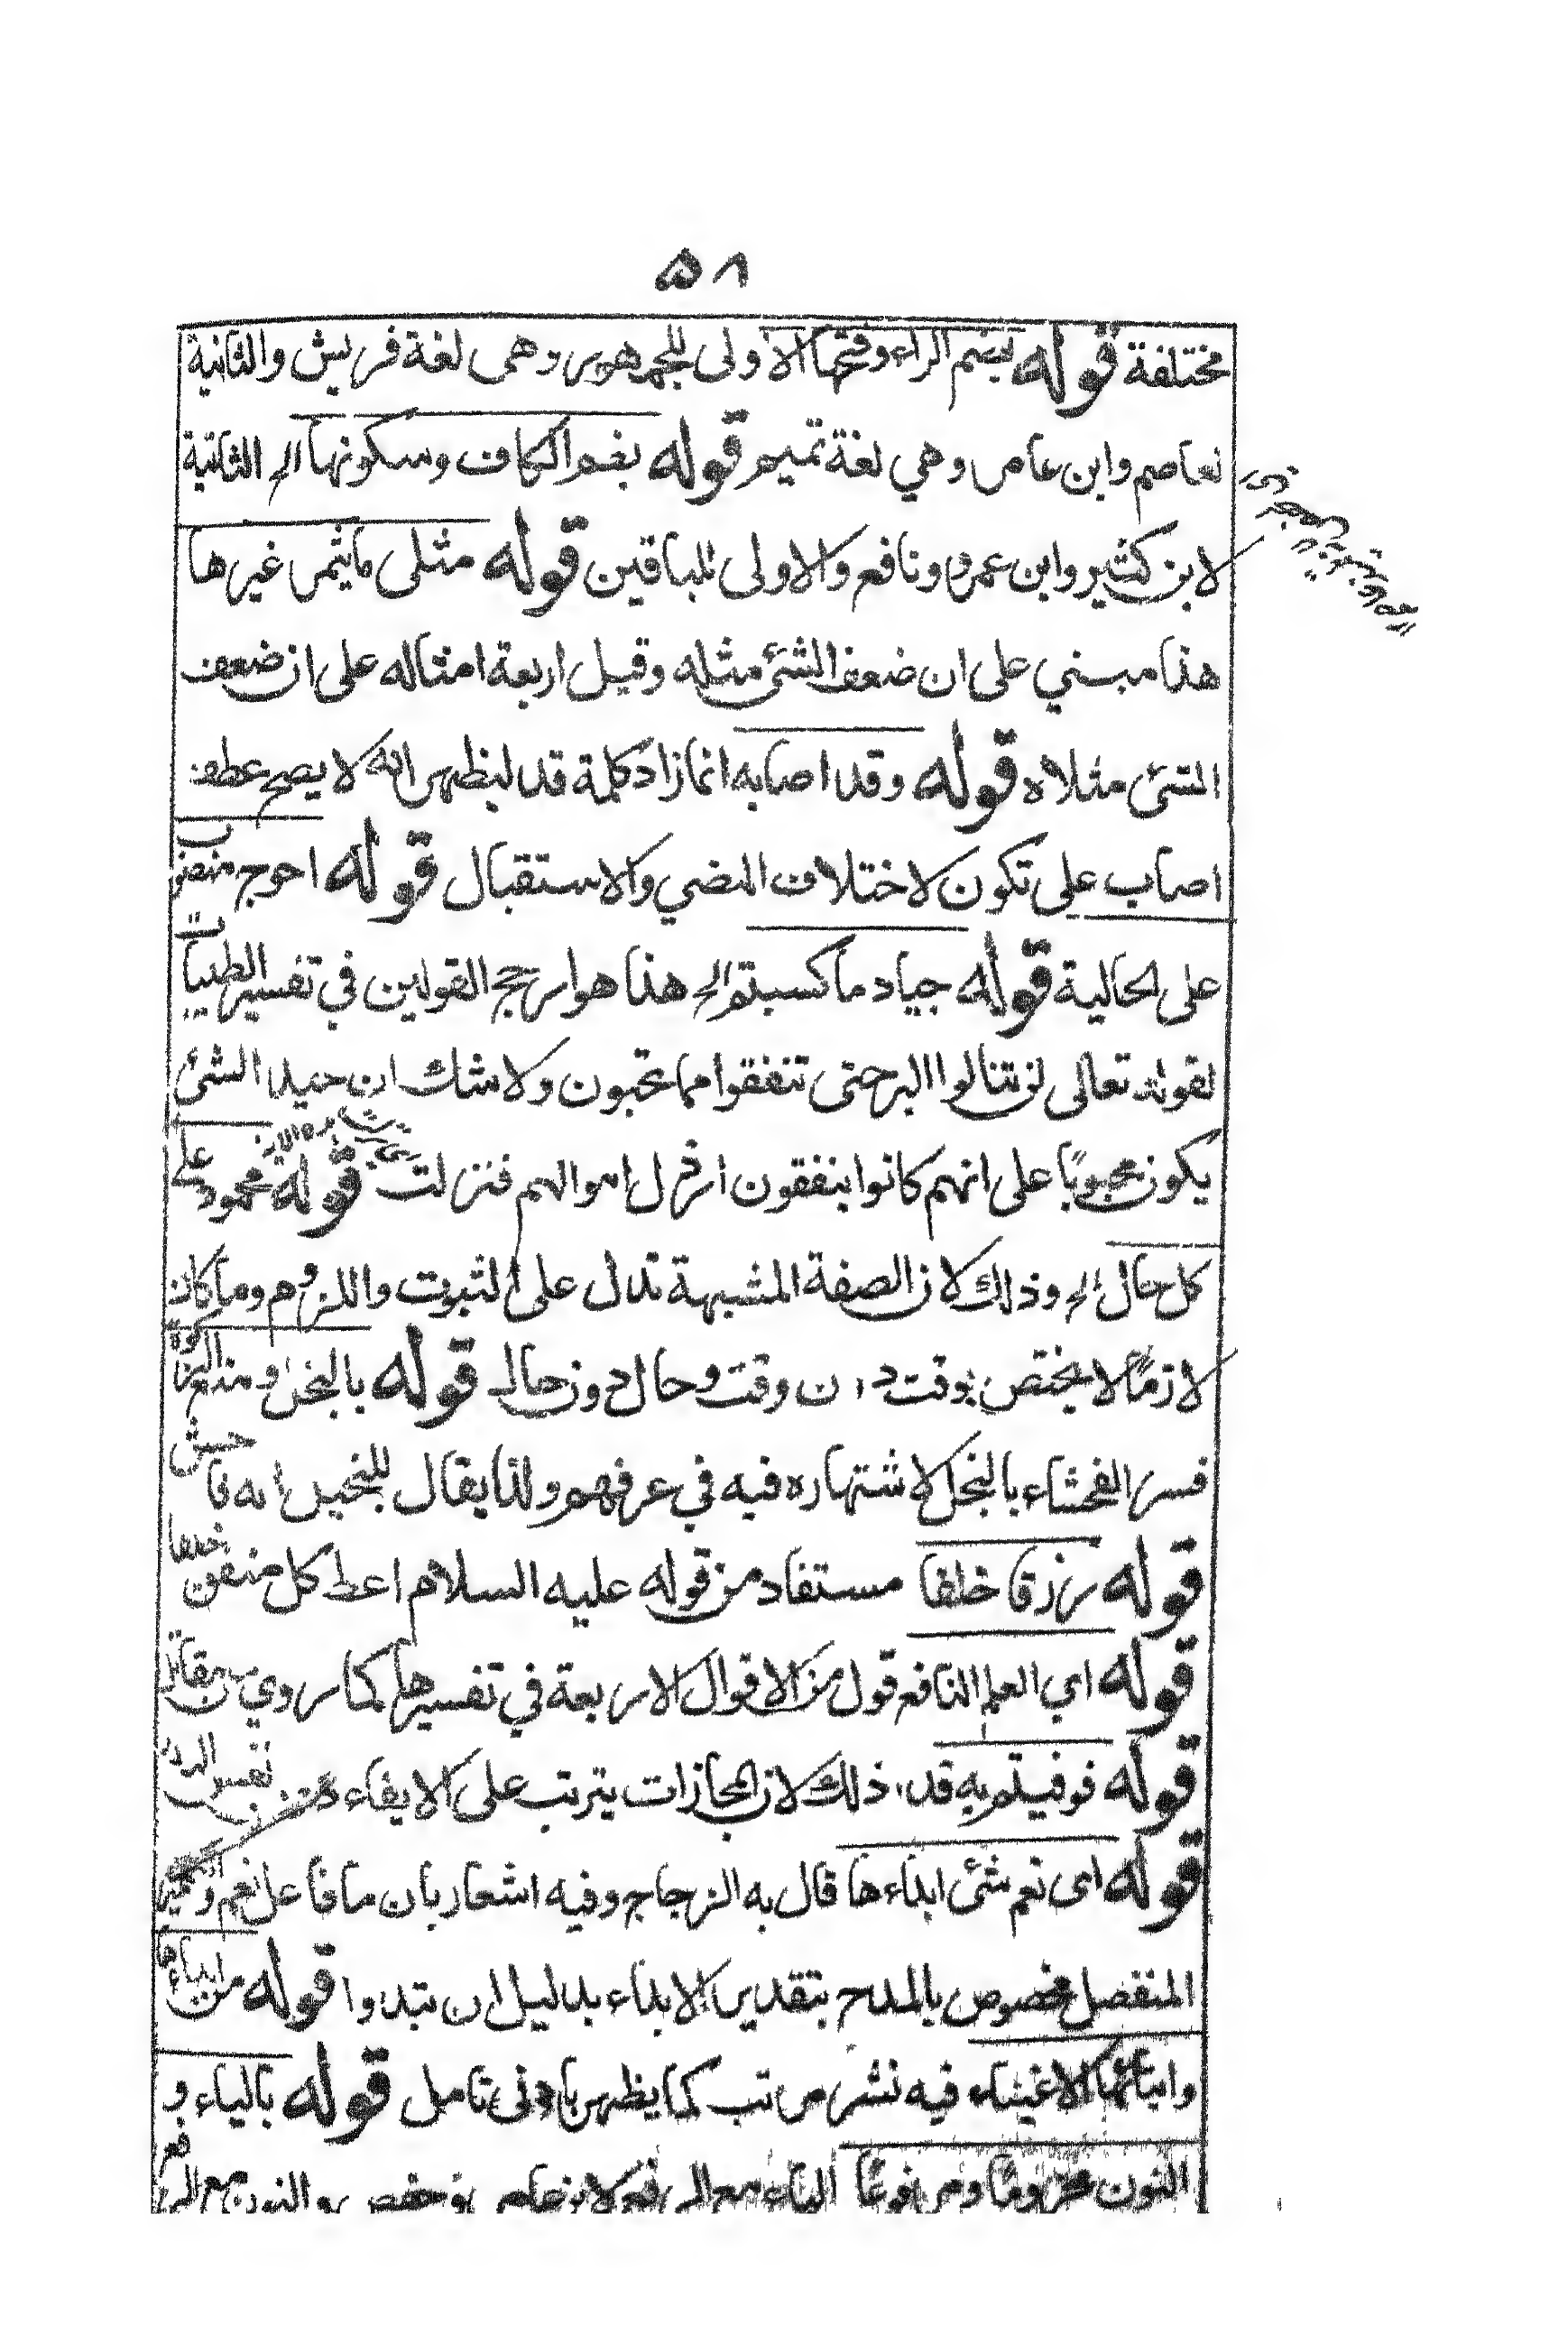 ٥٨
مختلفة قوله بضم الراء وفتحها الاولى للجمهور وهى لغة قريش والثانية
لعاصم وابن عامر وهي لغة تميم قوله بضم الكاف وسكونها الخ الثانية
لابن كثير وابن عمرو ونافع والاولى للباقين قوله مثلى ما يثمر غيرها
هذا مبني على ان ضعف الشئ مثله وقيل اربعة امثاله على ان ضعف
الشئ مثلاه قوله وقد اصابه انما زاد كلمة قد ليظهر انه لا يصح عطف
اصاب على تكون لاختلاف المضي والاستقبال قوله احوج منصوب
على الحالية قوله جياد ما كسبتم الخ هذا هو ارجح القولين في تفسير الطيبات
لقوله تعالى لن تنالوا البر حتى تنفقوا مما تحبون ولا شك ان جيد الشئ
يكون محبوبًا على انهم كانوا ينفقون ارذل اموالهم فنزلت قوله محمود على
كل حال الخ وذلك لان الصفة المشبهة تدل على الثبوت واللزوم وما كان
لازمًا لا يختص بوقت دون وقت وحال دون حال قوله بالبخل ومنع الزكوة
فسر الفحشاء بالبخل لاشتهاره فيه في عرفهم ولذا يقال للبخيل انه فاحش
قوله رزقا خلفا مستفاد من قوله عليه السلام اعط كل منفق خلفا
قوله اي العلم النافع قول من الاقوال الاربعة في تفسيرها كما روي عن مقاتل
قوله فوفيتم به قدر ذلك لان المجازات يترتب على الايفاء من نفس النذر
قوله اى نعم شئ ابداءها قال به الزجاج وفيه اشعار بان ما فاعل نعم والضمير
المنفصل مخصوص بالمدح بتقدير الابداء بدليل ان تبدوا قوله من ابداءها
وايتائها الاغنياء فيه نشر مرتب كما يظهر بادنى تامل قوله بالياء و
النون مجزومًا ومرفوعًا الياء مع الرفع لابن عامر وحفص والنون مع الرفع